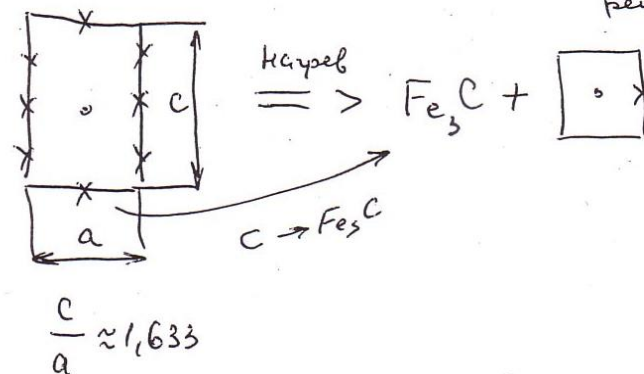 реш
нагрев
c
=> Fe₃C +
a
C → Fe₃C
c/a ≈ 1,633